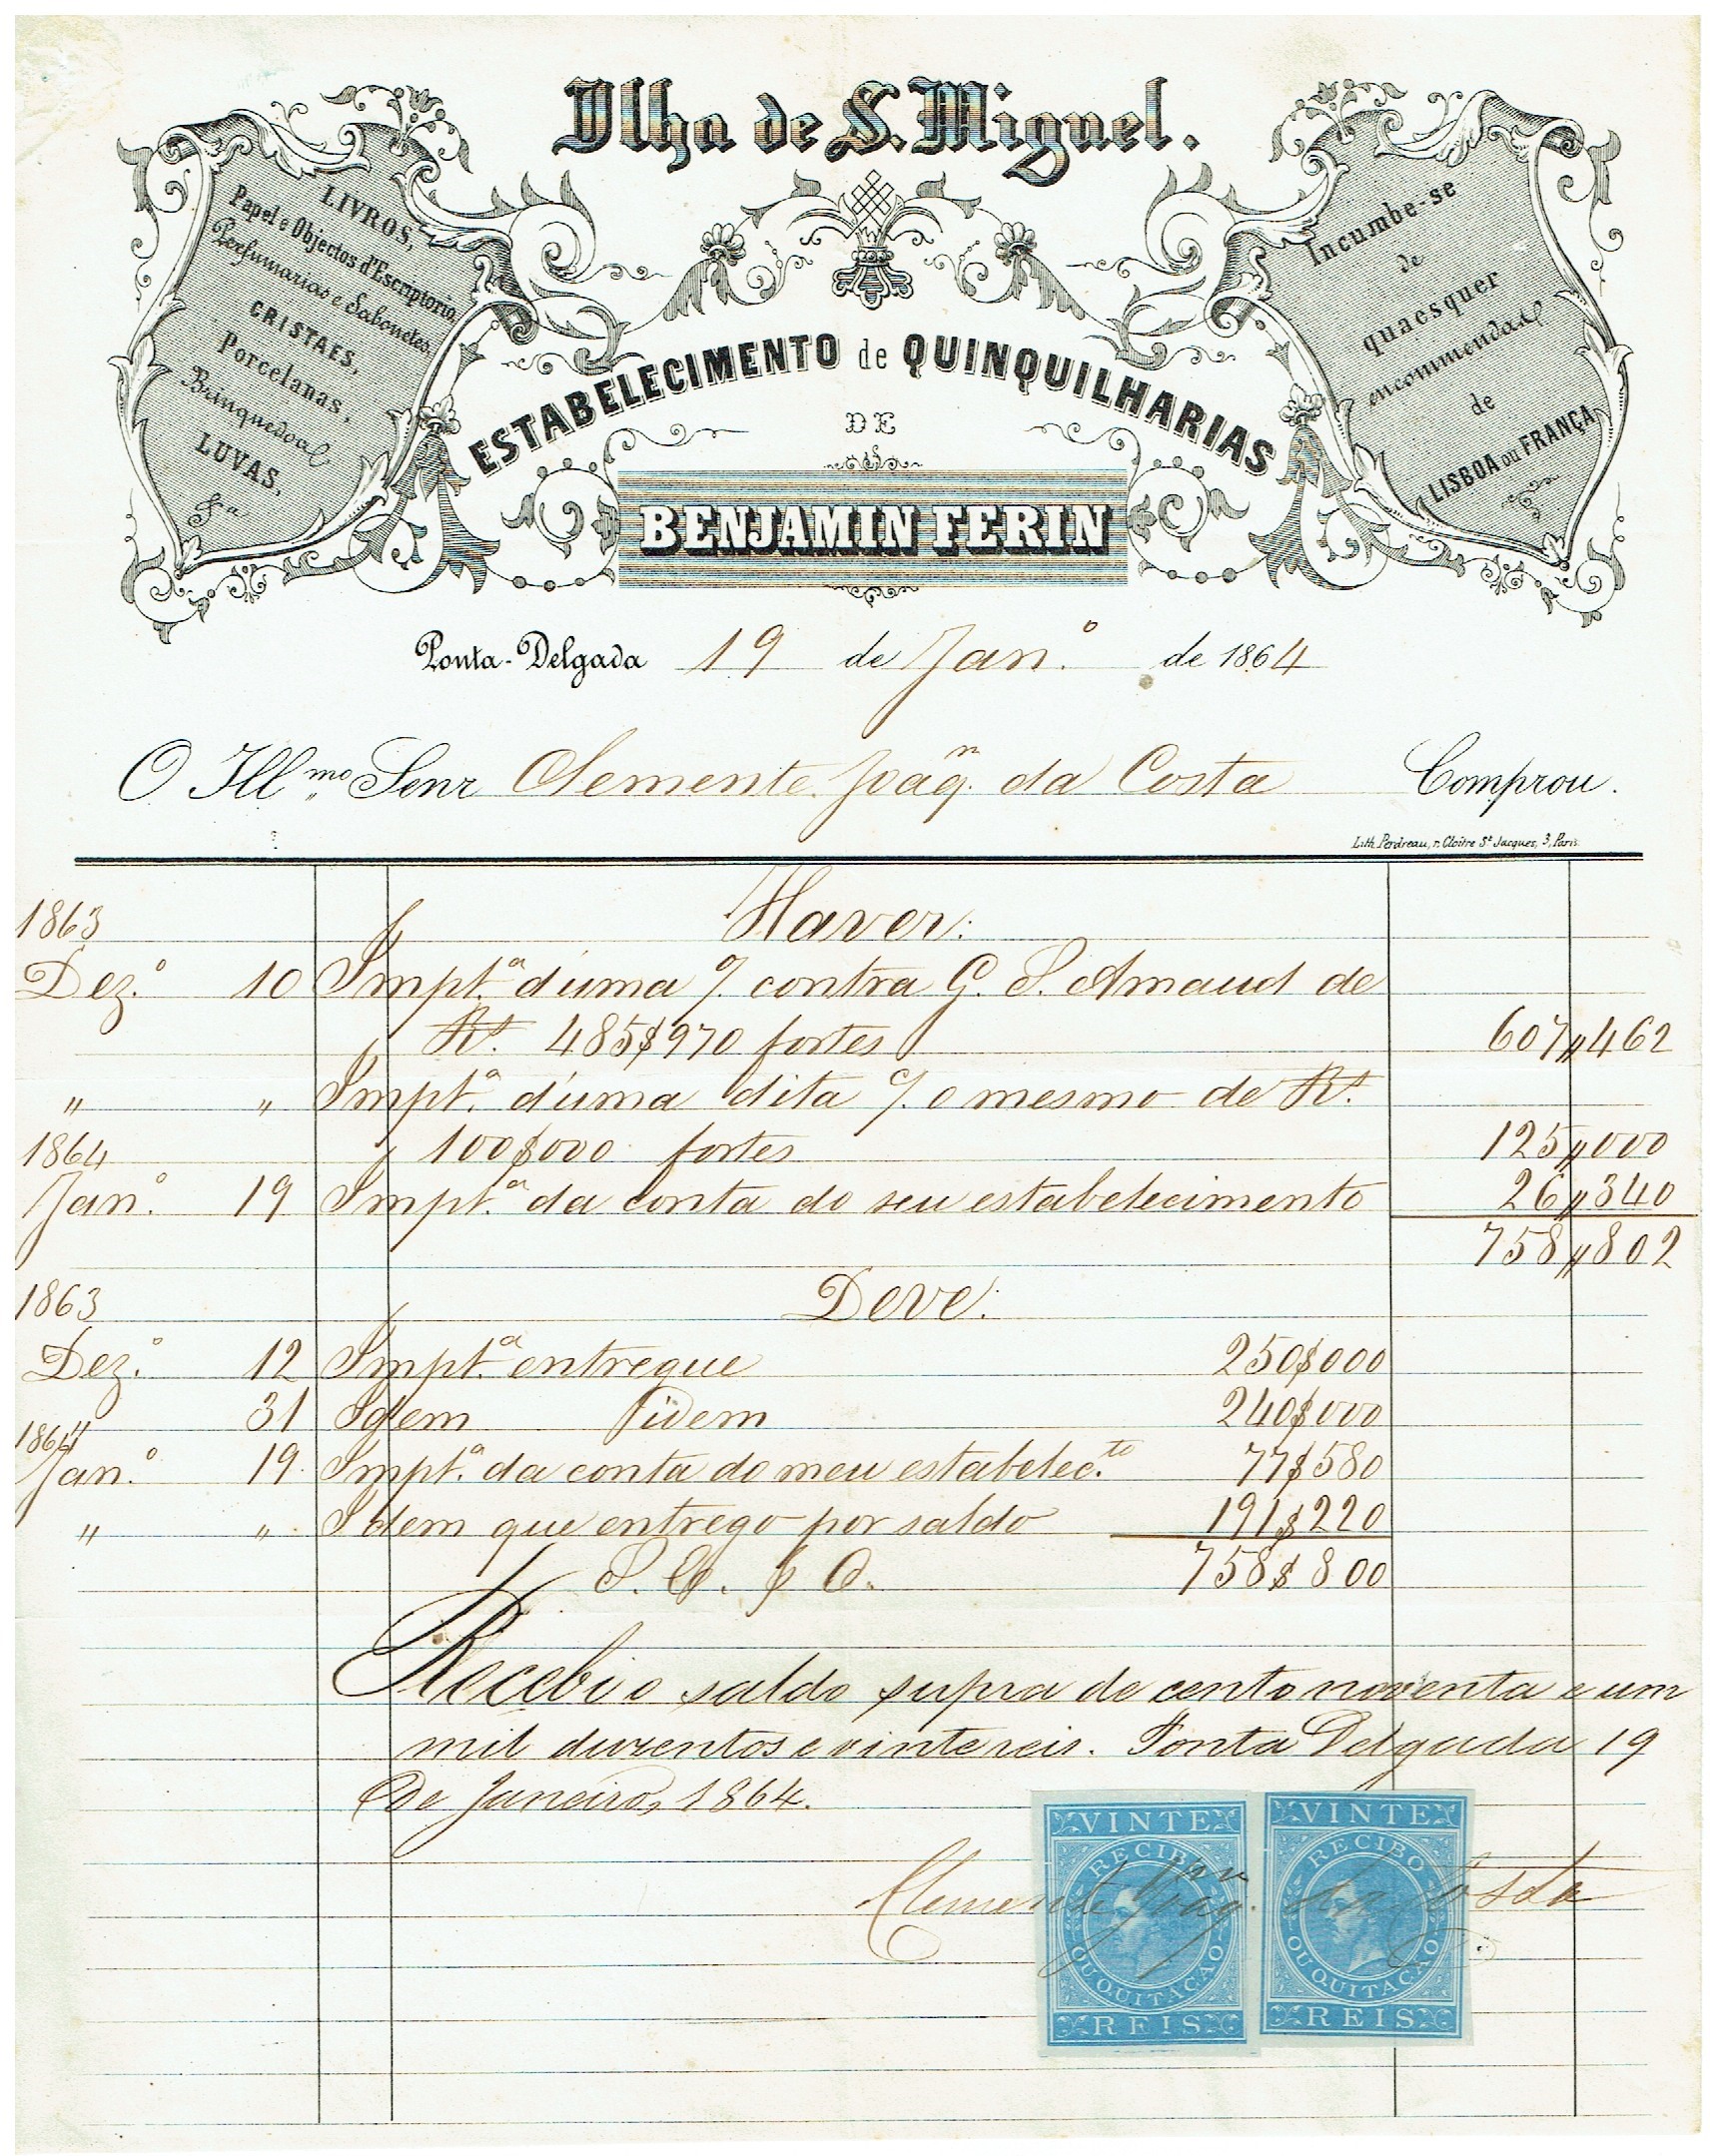 Ilha de S. Miguel.
LIVROS,
Papel e Objectos d'Escriptorio,
Perfumarias e Sabonetes,
CRISTAES,
Porcelanas,
Brinquedos
LUVAS,
&a
Incumbe-se
de
quaesquer
encommendas
de
LISBOA ou FRANÇA
ESTABELECIMENTO de QUINQUILHARIAS
DE
BENJAMIN FERIN
Ponta-Delgada 19 de Jan.º de 1864
O Illmo Senr Clemente Joaqn. da Costa Comprou.
Lith. Perdreau, r. Cloitre St Jacques, 3, Paris.
1863 Haver:
Dez.º 10 Impt.ª d'uma c/. contra G. S. Arnaud de
Rs. 485$970 fortes 607"462
" " Impt.ª d'uma dita c/. o mesmo de Rs.
1864 100$000 fortes 125"000
Jan.º 19 Impt.ª da conta do seu estabelecimento 26"340
758"802
1863 Deve:
Dez.º 12 Impt.ª entregue 250$000
" 31 Idem idem 240$000
1864
Jan.º 19 Impt.ª da conta do meu estabelec.to 77$580
" " Idem que entrego por saldo 191$220
S. E. & O. 758$800
Recebi o saldo supra de cento noventa e um
mil duzentos e vinte reis. Ponta Delgada 19
de Janeiro, 1864.
VINTE
RECIBO
OU QUITAÇAO
REIS
VINTE
RECIBO
OU QUITAÇAO
REIS
Clemente Joaqm. da Costa